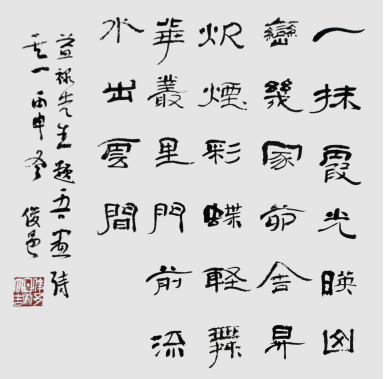 一抹霞光映幽
巒幾家茆舍昇
炊煙彩蝶軽舞
華叢里門前流
水出雲間
益先生題吾画诗
之一丙申冬俊邑